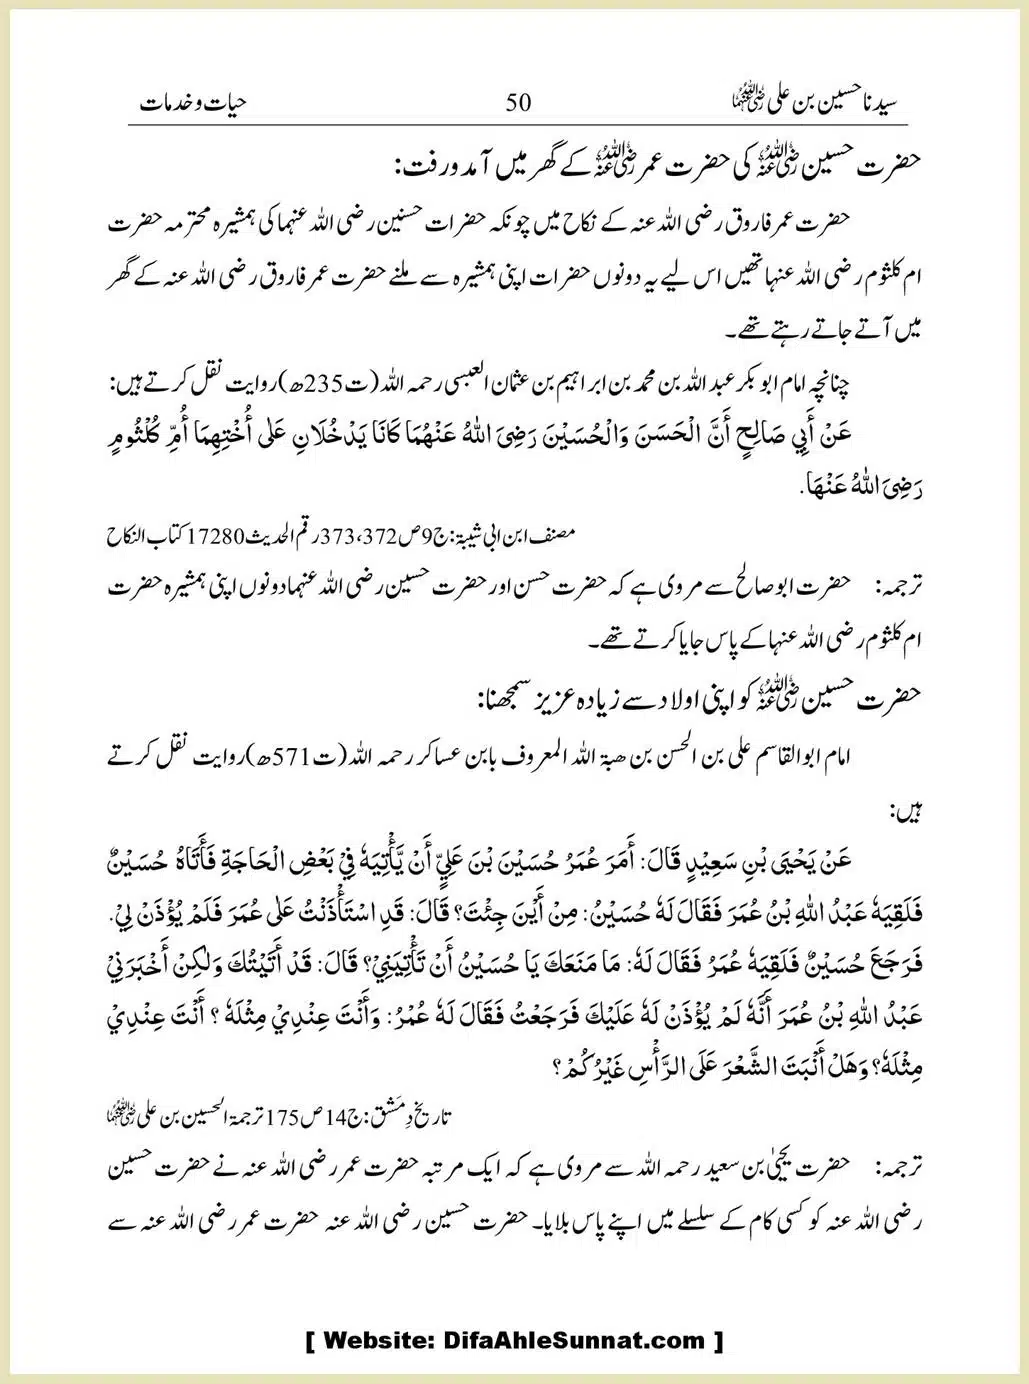 سیدنا حسین بن علی رضی اللہ عنہما 50 حیات و خدمات
حضرت حسین رضی اللہ عنہ کی حضرت عمر رضی اللہ عنہ کے گھر میں آمد و رفت:
حضرت عمر فاروق رضی اللہ عنہ کے نکاح میں چونکہ حضرات حسنین رضی اللہ عنہما کی ہمشیرہ محترمہ حضرت
ام کلثوم رضی اللہ عنہا تھیں اس لیے یہ دونوں حضرات اپنی ہمشیرہ سے ملنے حضرت عمر فاروق رضی اللہ عنہ کے گھر
میں آتے جاتے رہتے تھے۔
چنانچہ امام ابو بکر عبد اللہ بن محمد بن ابراہیم بن عثمان العبسی رحمہ اللہ (ت235ھ) روایت نقل کرتے ہیں:
عَنْ أَبِي صَالِحٍ أَنَّ الْحَسَنَ وَالْحُسَيْنَ رَضِيَ اللهُ عَنْهُمَا كَانَا يَدْخُلَانِ عَلٰى أُخْتِهِمَا أُمِّ كُلْثُومٍ
رَضِيَ اللهُ عَنْهَا.
مصنف ابن ابی شیبۃ: ج9 ص372، 373 رقم الحدیث 17280 کتاب النکاح
ترجمہ: حضرت ابو صالح سے مروی ہے کہ حضرت حسن اور حضرت حسین رضی اللہ عنہما دونوں اپنی ہمشیرہ حضرت
ام کلثوم رضی اللہ عنہا کے پاس جایا کرتے تھے۔
حضرت حسین رضی اللہ عنہ کو اپنی اولاد سے زیادہ عزیز سمجھنا:
امام ابو القاسم علی بن الحسن بن ھبۃ اللہ المعروف بابن عساکر رحمہ اللہ (ت571ھ) روایت نقل کرتے
ہیں:
عَنْ يَحْيَى بْنِ سَعِيْدٍ قَالَ: أَمَرَ عُمَرُ حُسَيْنَ بْنَ عَلِيٍّ أَنْ يَّأْتِيَهٗ فِيْ بَعْضِ الْحَاجَةِ فَأَتَاهُ حُسَيْنٌ
فَلَقِيَهٗ عَبْدُ اللهِ بْنُ عُمَرَ فَقَالَ لَهٗ حُسَيْنُ: مِنْ أَيْنَ جِئْتَ؟ قَالَ: قَدِ اسْتَأْذَنْتُ عَلٰى عُمَرَ فَلَمْ يُؤْذَنْ لِيْ.
فَرَجَعَ حُسَيْنٌ فَلَقِيَهٗ عُمَرُ فَقَالَ لَهٗ: مَا مَنَعَكَ يَا حُسَيْنُ أَنْ تَأْتِيَنِيْ؟ قَالَ: قَدْ أَتَيْتُكَ وَلٰكِنْ أَخْبَرَنِيْ
عَبْدُ اللهِ بْنُ عُمَرَ أَنَّهٗ لَمْ يُؤْذَنْ لَهٗ عَلَيْكَ فَرَجَعْتُ فَقَالَ لَهٗ عُمَرُ: وَأَنْتَ عِنْدِيْ مِثْلَهٗ؟ أَنْتَ عِنْدِيْ
مِثْلَهٗ؟ وَهَلْ أَنْبَتَ الشَّعْرَ عَلَى الرَّأْسِ غَيْرُكُمْ؟
تاریخ دِمَشق: ج14 ص175 ترجمۃ الحسین بن علی رضی اللہ عنہما
ترجمہ: حضرت یحیٰ بن سعید رحمہ اللہ سے مروی ہے کہ ایک مرتبہ حضرت عمر رضی اللہ عنہ نے حضرت حسین
رضی اللہ عنہ کو کسی کام کے سلسلے میں اپنے پاس بلایا۔ حضرت حسین رضی اللہ عنہ حضرت عمر رضی اللہ عنہ سے
[ Website: DifaAhleSunnat.com ]